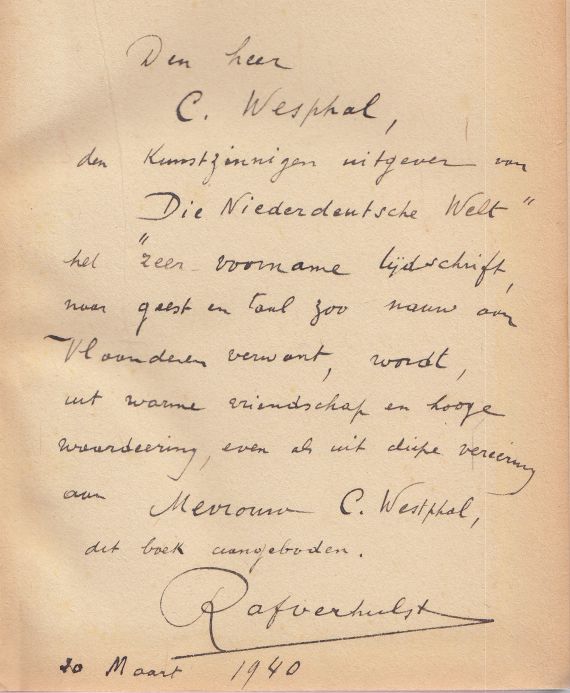 Den heer
C. Westphal,
den Kunstzinnigen uitgever van
Die Niederdeutsche Welt"
het "zeer voorname tijdschrift,
naar geest en taal zoo nauw aan
Vlaanderen verwant, wordt,
uit warme vriendschap en hooge
waardeering, even als uit diepe vereering
aan Mevrouw C. Westphal,
dit boek aangeboden.
Rafverhulst
20 Maart 1940